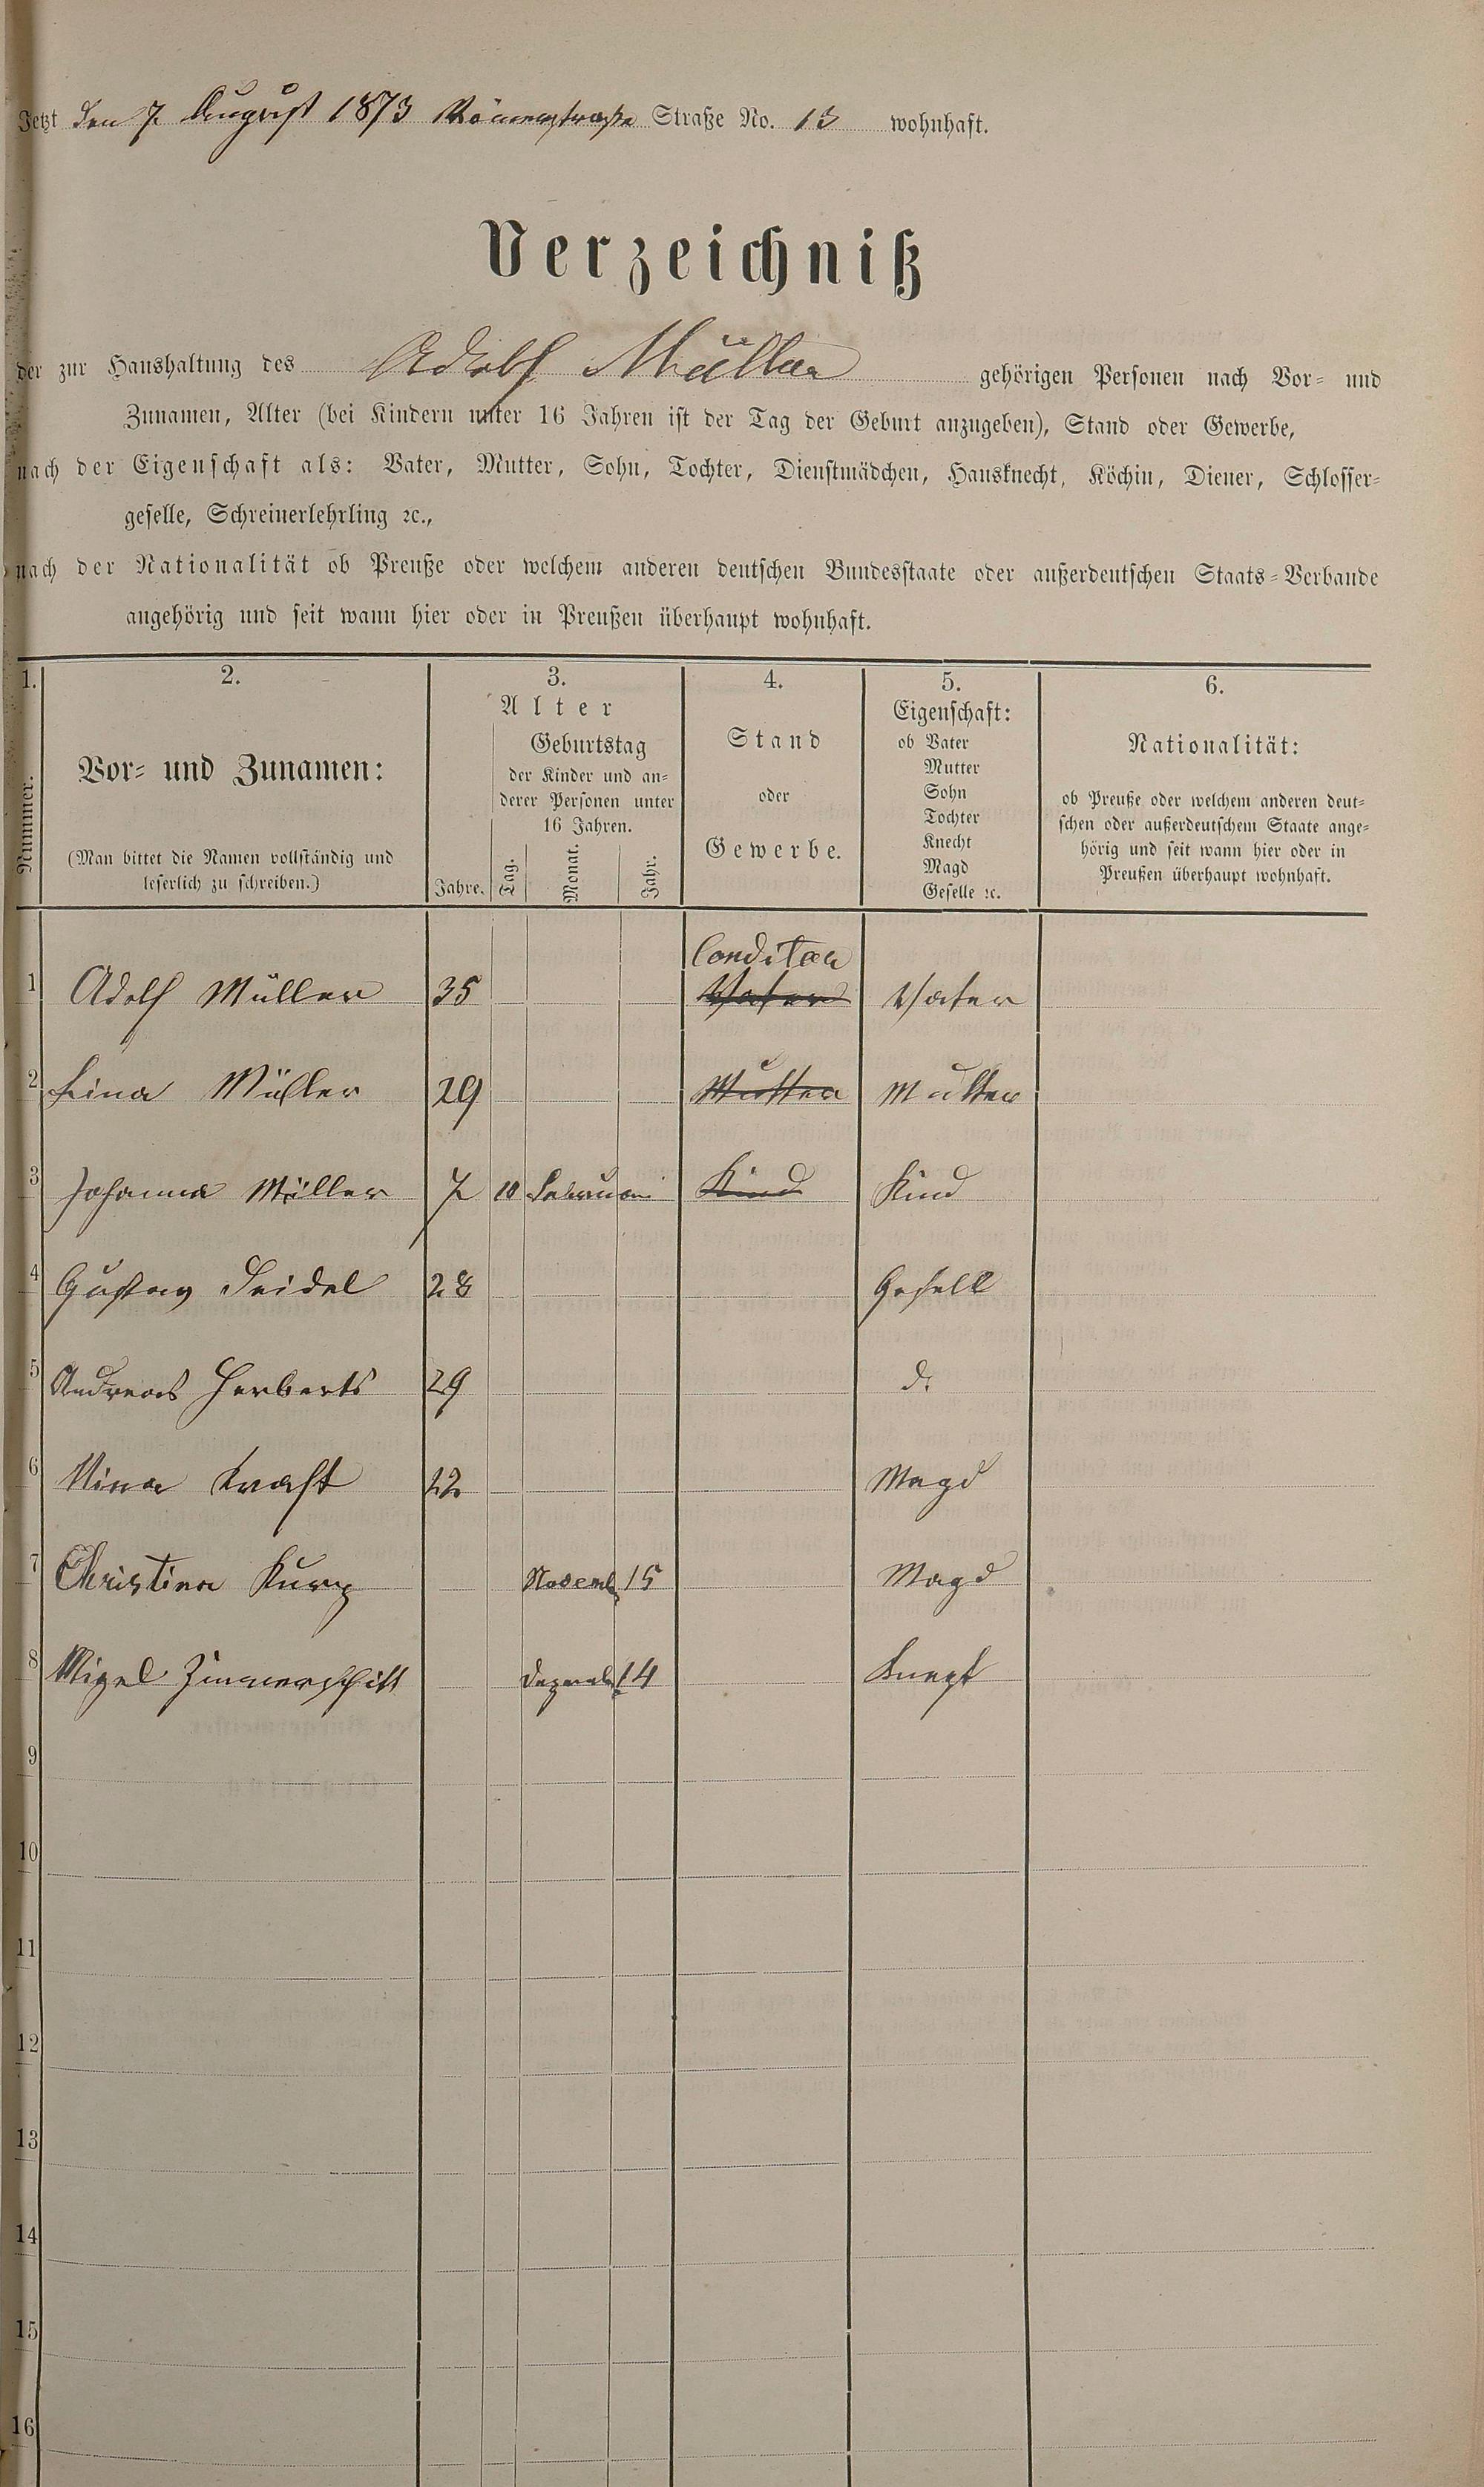 Jetzt den 7. August 1873 Römerstraße Straße No. 13 wohnhaft.
Verzeichniß
der zur Haushaltung des Adolf Müller gehörigen Personen nach Vor- und
Zunamen, Alter (bei Kindern unter 16 Jahren ist der Tag der Geburt anzugeben), Stand oder Gewerbe,
nach der Eigenschaft als: Vater, Mutter, Sohn, Tochter, Dienstmädchen, Hausknecht, Köchin, Diener, Schlosser-
geselle, Schreinerlehrling ꝛc.,
nach der Nationalität ob Preuße oder welchem anderen deutschen Bundesstaate oder außerdeutschen Staats-Verbande
angehörig und seit wann hier oder in Preußen überhaupt wohnhaft.
1.
Nummer.
2.
Vor- und Zunamen:
(Man bittet die Namen vollständig und
leserlich zu schreiben.)
3.
Alter
Jahre.
Geburtstag
der Kinder und an-
derer Personen unter
16 Jahren.
Tag. Monat. Jahr.
4.
Stand
oder
Gewerbe.
5.
Eigenschaft:
ob Vater
Mutter
Sohn
Tochter
Knecht
Magd
Geselle ꝛc.
6.
Nationalität:
ob Preuße oder welchem anderen deut-
schen oder außerdeutschem Staate ange-
hörig und seit wann hier oder in
Preußen überhaupt wohnhaft.
Conditor
1 Adolf Müller 35 Vater Vater
2 Lina Müller 29 Mutter Mutter
3 Johanna Müller 7 10 Februari Kind Kind
4 Gustav Seidel 28 Gesell
5 Andreas Herberts 29 d.
6 Mina Kraft 22 Magd
7 Christina Kurz Novemb 15 Magd
8 Dezemb 14 Knegt
9
10
11
12
13
14
15
16